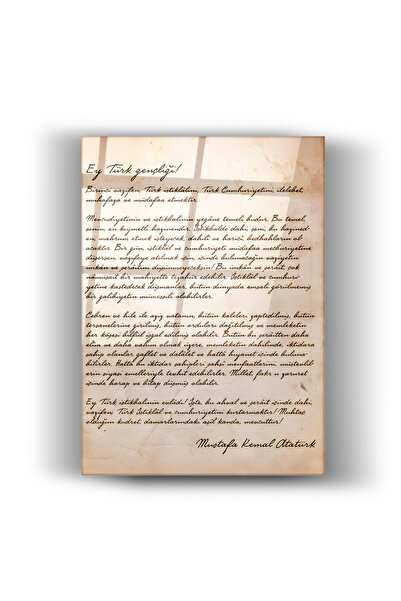 Ey Türk gençliği!
Birinci vazifen, Türk istiklâlini, Türk Cumhuriyetini, ilelebet,
muhafaza ve müdafaa etmektir.
Mevcudiyetinin ve istikbalinin yegâne temeli budur. Bu temel,
senin, en kıymetli hazinendir. İstikbalde dahi, seni, bu hazined-
en, mahrum etmek isteyecek, dahilî ve haricî, bedhahların ol-
acaktır. Bir gün, istiklâl ve cumhuriyeti müdafaa mecburiyetine
düşersen, vazifeye atılmak için, içinde bulunacağın vaziyetin
imkân ve şeraitini düşünmeyeceksin! Bu imkân ve şerait, çok
nâmüsait bir mahiyette tezahür edebilir. İstiklâl ve cumhuri-
yetine kastedecek düşmanlar, bütün dünyada emsali görülmemiş
bir galibiyetin mümessili olabilirler.
Cebren ve hile ile aziz vatanın, bütün kaleleri zaptedilmiş, bütün
tersanelerine girilmiş, bütün orduları dağıtılmış ve memleketin
her köşesi bilfiil işgal edilmiş olabilir. Bütün bu şeraitten daha
elîm ve daha vahim olmak üzere, memleketin dahilinde, iktidara
sahip olanlar gaflet ve dalâlet ve hattâ hıyanet içinde buluna-
bilirler. Hattâ bu iktidar sahipleri şahsî menfaatlerini, müstevlil-
erin siyasi emelleriyle tevhit edebilirler. Millet, fakr u zaruret
içinde harap ve bîtap düşmüş olabilir.
Ey Türk istikbalinin evlâdı! İşte, bu ahval ve şerait içinde dahi,
vazifen; Türk İstiklâl ve cumhuriyetini kurtarmaktır! Muhtaç
olduğun kudret, damarlarındaki asîl kanda, mevcuttur!
Mustafa Kemal Atatürk